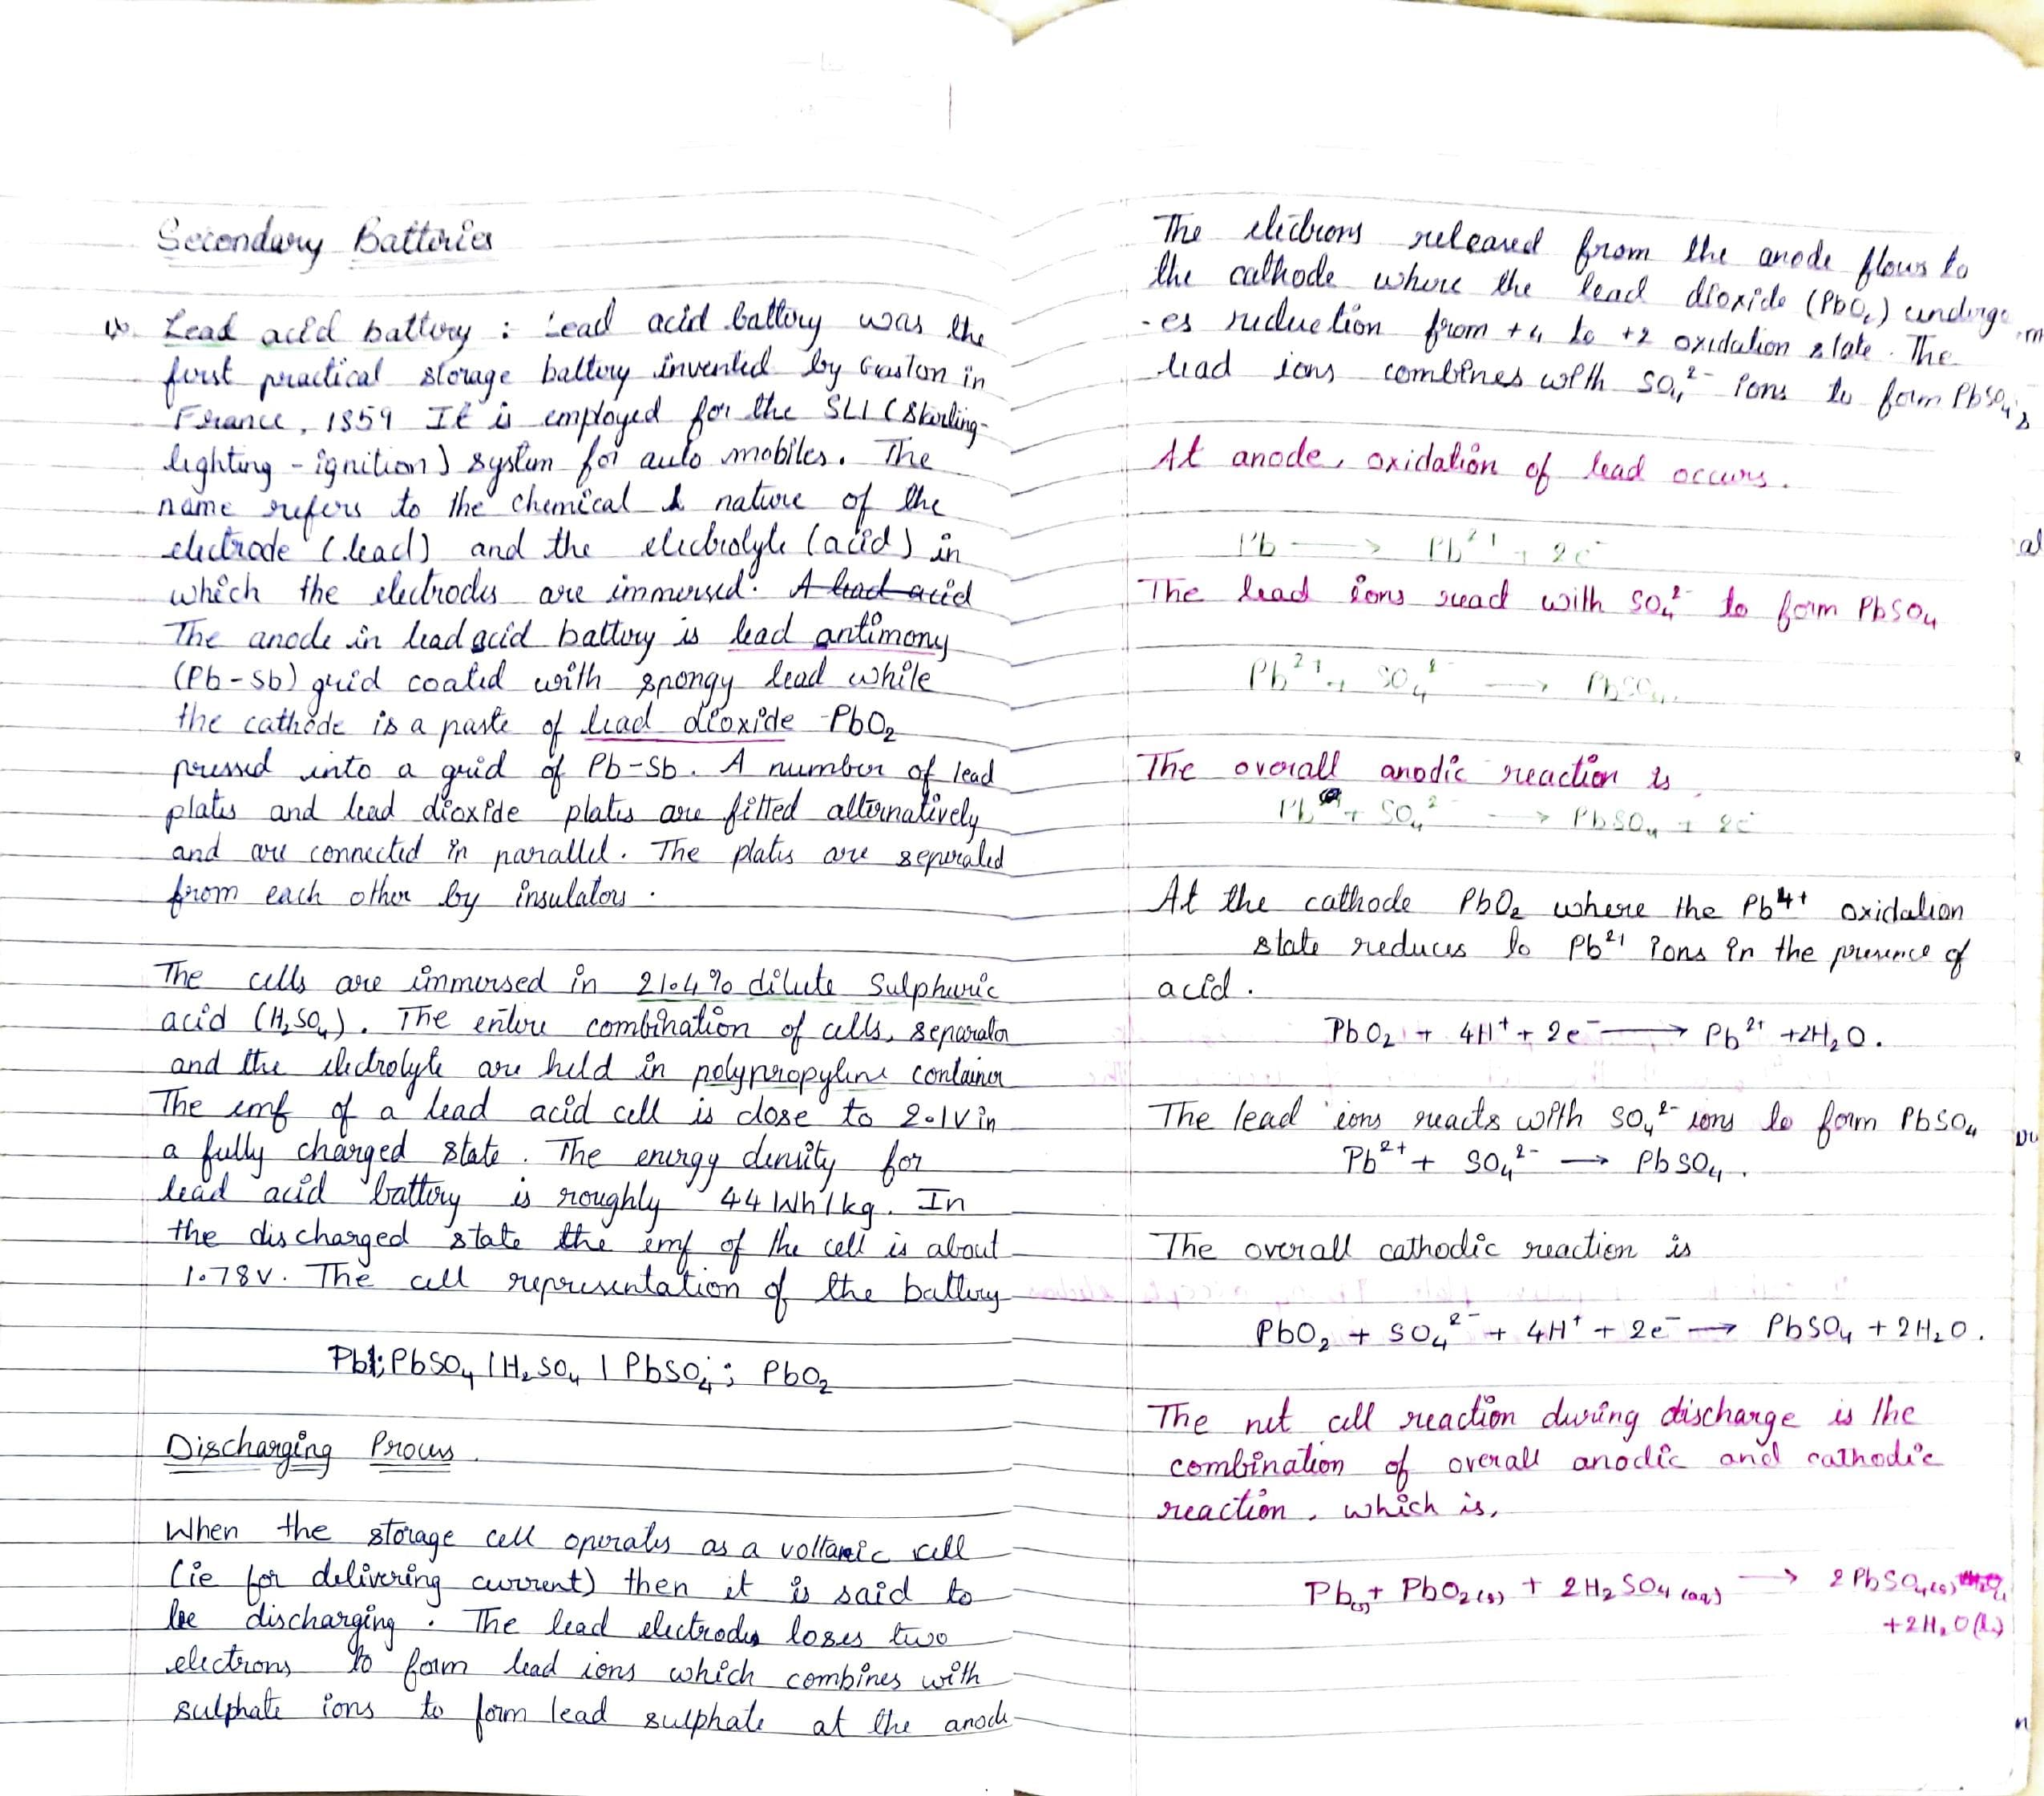 Secondary Batteries
Lead acid battery : Lead acid battery was the
first practical storage battery invented by Gaston in
France, 1859 It is employed for the SLI (Starting-
lighting - ignition) system for auto mobiles. The
name refers to the chemical & nature of the
electrode (lead) and the electrolyte (acid) in
which the electrodes are immersed. A lead acid
The anode in lead acid battery is lead antimony
(Pb-Sb) grid coated with spongy lead while
the cathode is a paste of lead dioxide -PbO₂
pressed into a grid of Pb-Sb. A number of lead
plates and lead dioxide plates are fitted alternatively
and are connected in parallel. The plates are seperated
from each other by insulators.
The cells are immersed in 21.4% dilute Sulphuric
acid (H₂SO₄). The entire combination of cells, separator
and the electrolyte are held in polypropylene container
The emf of a lead acid cell is close to 2.1V in
a fully charged state. The energy density for
lead acid battery is roughly 44 Wh/kg. In
the discharged state the emf of the cell is about
1.78V. The cell representation of the battery
Pb;PbSO₄ | H₂SO₄ | PbSO₄; PbO₂
Discharging Process.
When the storage cell operates as a voltaic cell
(ie for delivering current) then it is said to
be discharging. The lead electrodes loses two
electrons to form lead ions which combines with
sulphate ions to form lead sulphate at the anode
The electrons released from the anode flows to
the cathode where the lead dioxide (PbO₂) undergo
-es reduction from +4 to +2 oxidation state. The
lead ions combines with SO₄²⁻ ions to form PbSO₄
At anode, oxidation of lead occurs.
Pb ⟶ Pb²⁺ + 2e⁻
The lead ions react with SO₄²⁻ to form PbSO₄
Pb²⁺ + SO₄²⁻ ⟶ PbSO₄
The overall anodic reaction is
Pb + SO₄²⁻ ⟶ PbSO₄ + 2e⁻
At the cathode PbO₂ where the Pb⁴⁺ oxidation
state reduces to Pb²⁺ ions in the presence of
acid.
PbO₂ + 4H⁺ + 2e⁻ ⟶ Pb²⁺ +2H₂O.
The lead ions reacts with SO₄²⁻ ions to form PbSO₄
Pb²⁺ + SO₄²⁻ ⟶ PbSO₄.
The overall cathodic reaction is
PbO₂ + SO₄²⁻ + 4H⁺ + 2e⁻ ⟶ PbSO₄ + 2H₂O.
The net cell reaction during discharge is the
combination of overall anodic and cathodic
reaction, which is,
Pb(s) + PbO₂(s) + 2H₂SO₄(aq) ⟶ 2PbSO₄(s)
+2H₂O(l)